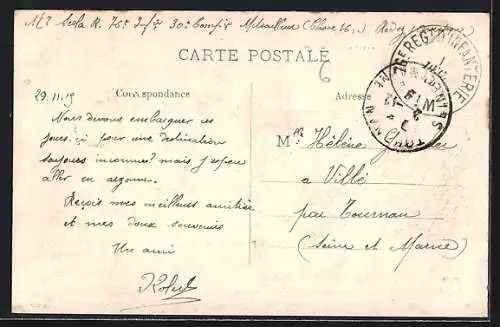 Mr Scola R. 76e Infie 30e Compie Mitrailleur
CARTE POSTALE
6
Correspondance
Adresse
29.11.19
Nous devons embarquer ces
jours ci pour une destination
toujours inconnue? mais j'espère
aller en argonne.
Reçois mes meilleurs amitiés
et mes doux souvenirs
Un ami
Robert
Mlle Hélène
a Villé
par Tournan
(Seine et Marne)
REGT D'INFANTERIE